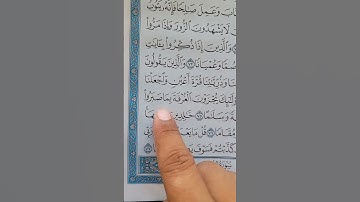 تَابَ وَعَمِلَ صَٰلِحًا فَإِنَّهُۥ يَتُوبُ
لَا يَشْهَدُونَ ٱلزُّورَ وَإِذَا مَرُّوا۟
وَٱلَّذِينَ إِذَا ذُكِّرُوا۟ بِـَٔايَٰتِ
وَعُمْيَانًا ٧٣ وَٱلَّذِينَ يَقُولُونَ
وَذُرِّيَّٰتِنَا قُرَّةَ أَعْيُنٍ وَٱجْعَلْنَا
أُو۟لَٰٓئِكَ يُجْزَوْنَ ٱلْغُرْفَةَ بِمَا صَبَرُوا۟
وَسَلَٰمًا ٧٥ خَٰلِدِينَ
قُلْ مَا رَبِّى
كَذَّبْتُمْ فَسَوْفَ